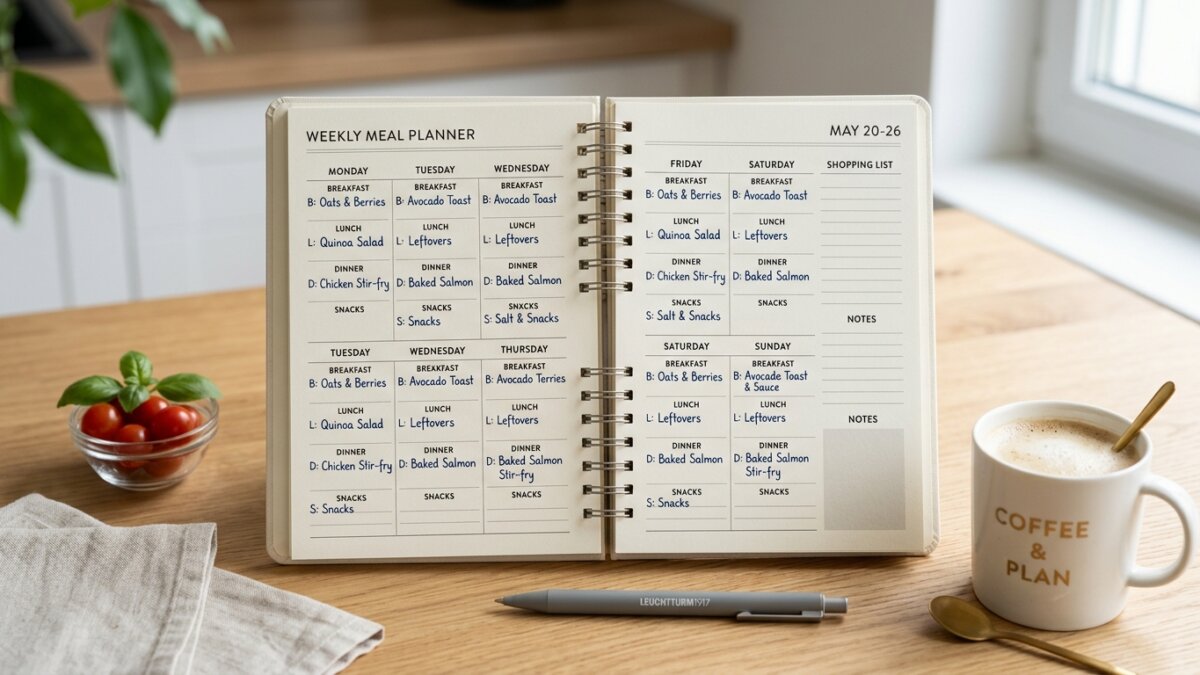 WEEKLY MEAL PLANNER
MONDAY
BREAKFAST
B: Oats & Berries
LUNCH
L: Quinoa Salad
DINNER
D: Chicken Stir-fry
SNACKS
TUESDAY
BREAKFAST
B: Avocado Toast
LUNCH
L: Leftovers
DINNER
D: Baked Salmon
SNACKS
S: Snacks
WEDNESDAY
BREAKFAST
B: Avocado Toast
LUNCH
L: Leftovers
DINNER
D: Baked Salmon
SNXCKS
S: Salt & Snacks
TUESDAY
BREAKFAST
B: Oats & Berries
LUNCH
L: Quinoa Salad
DINNER
D: Chicken Stir-fry
SNACKS
S: Snacks
WEDNESDAY
BREAKFAST
B: Avocado Toast
LUNCH
L: Leftovers
DINNER
D: Baked Salmon
SNACKS
THURSDAY
BREAKFAST
B: Avocado Terries
LUNCH
L: Leftovers
DINNER
D: Baked Salmon
Stir-fry
SNACKS
MAY 20-26
FRIDAY
BREAKFAST
B: Oats & Berries
LUNCH
L: Quinoa Salad
DINNER
D: Chicken Stir-fry
SNACKS
S: Salt & Snacks
SATURDAY
BREAKFAST
B: Avocado Toast
LUNCH
L: Leftovers
DINNER
D: Baked Salmon
SNACKS
SATURDAY
BREAKFAST
B: Oats & Berries
LUNCH
L: Leftovers
DINNER
D: Baked Salmon
SNACKS
S: Snacks
SUNDAY
BREAKFAST
B: Avocade Toast
& Sauce
LUNCH
L: Leftovers
DINNER
D: Baked Salmon
Stir-fry
SNACKS
SHOPPING LIST
NOTES
NOTES
LEUCHTTURM1917
COFFEE
&
PLAN